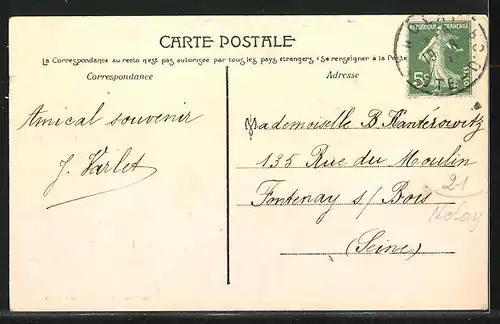 CARTE POSTALE
La Correspondance au recto n'est pas autorisée par tous les pays étrangers (Se renseigner à la Poste
Correspondance
Adresse
RÉPUBLIQUE FRANÇAISE
5c
POSTES
Amical souvenir
J. Varlet
Mademoiselle B. Kantérowitz
135 Rue du Moulin
Fontenay s/ Bois
(Seine)
21
Nolay